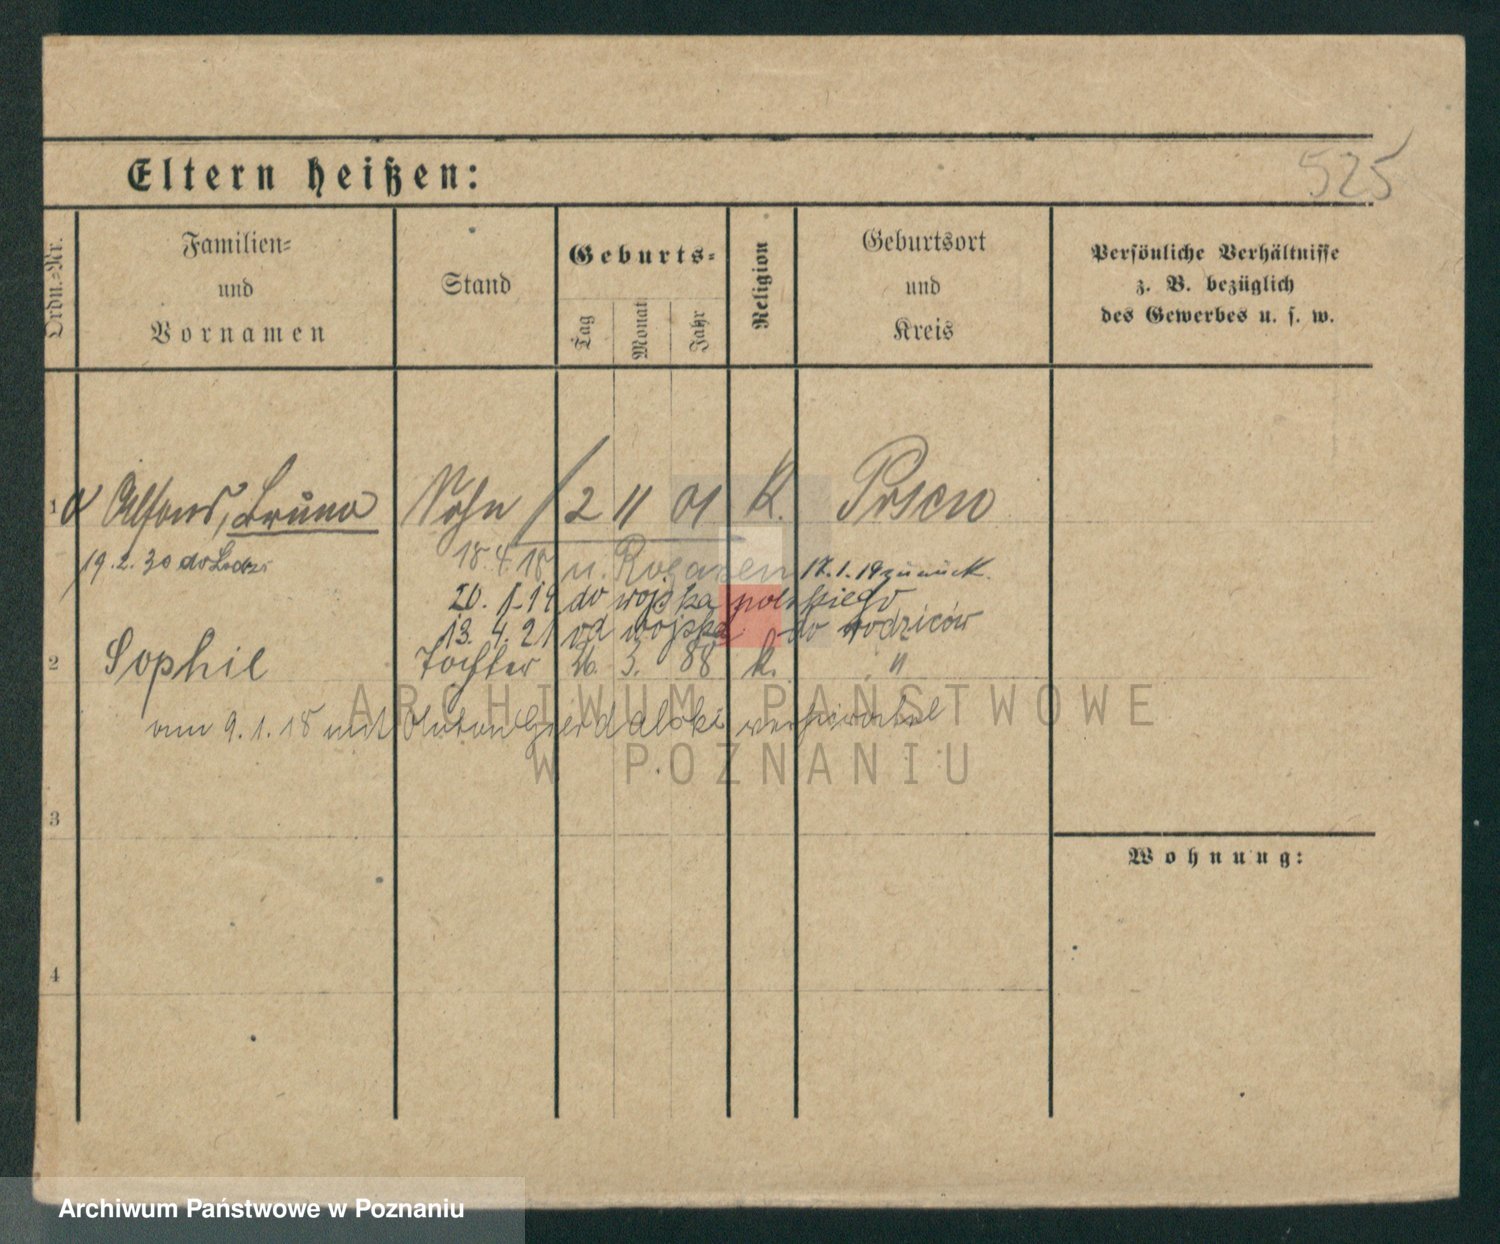 525
Eltern heißen:
Ordn.-Nr.
Familien- und Vornamen
Stand
Geburts-
Tag
Monat
Jahr
Religion
Geburtsort und Kreis
Persönliche Verhältnisse z. B. bezüglich des Gewerbes u. s. w.
1 Alfons, Bruno Sohn 2 11 01 K. Posen
19.2.30 do Łodzi 18.4.18 n. Rogasen 17.1.19 zurück.
20.1.19 do wojska polskiego
13.4.21 od wojska do rodziców
2 Sophie Tochter 26. 3. 88 k. "
am 9.1.18 mit Anton
3
Wohnung:
4
ARCHIWUM PAŃSTWOWE
W POZNANIU
Archiwum Państwowe w Poznaniu